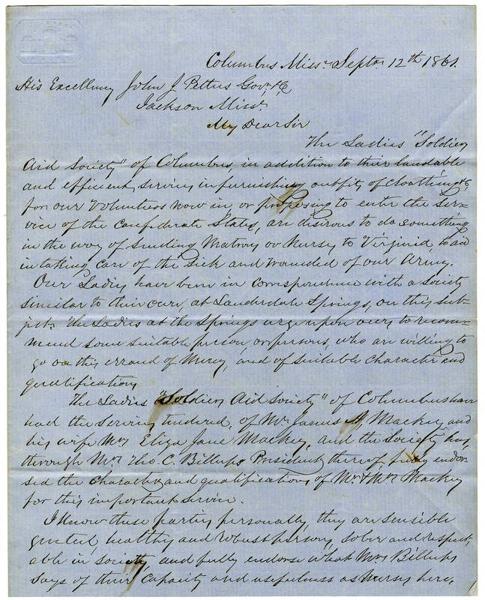 Columbus Miss. Septr 12th 1861.
His Excellency John J Pettus Govr &c
Jackson Misst.
My Dear Sir
The Ladies "Soldiers
Aid Society" of Columbus, in addition to their laudable
and efficient service in furnishing outfits of cloathing &c
for our Volunteers now in, or proposing to enter the Ser-
vice of the Confederate States, are desirous to do something
in the way of sending Matrons or Nurses to Virginia, to aid
in taking care of the Sick and wounded of our Army.
Our Ladies have been in correspondence with a Society
similar to their own, at Lauderdale Springs, on this sub-
ject. The Ladies at the Springs urge upon ours to recom-
mend some suitable person or persons, who are willing to
go on this errand of Mercy, and of suitable character and
qualifications
The Ladies "Soldiers Aid Society" of Columbus have
had the services tendered, of Mr James Mackey and
his wife Mrs Eliza Jane Mackey, and the Society has
through Mrs Tho. C. Billups President thereof fully endor-
sed the character and qualifications of Mr & Mrs Mackey
for this important service.
I know these parties personally, they are sensible
genteel healthy and robust persons, sober and respect-
able in society and fully endorse what Mrs Billups
says of their capacity and usefulness as Nurses here,